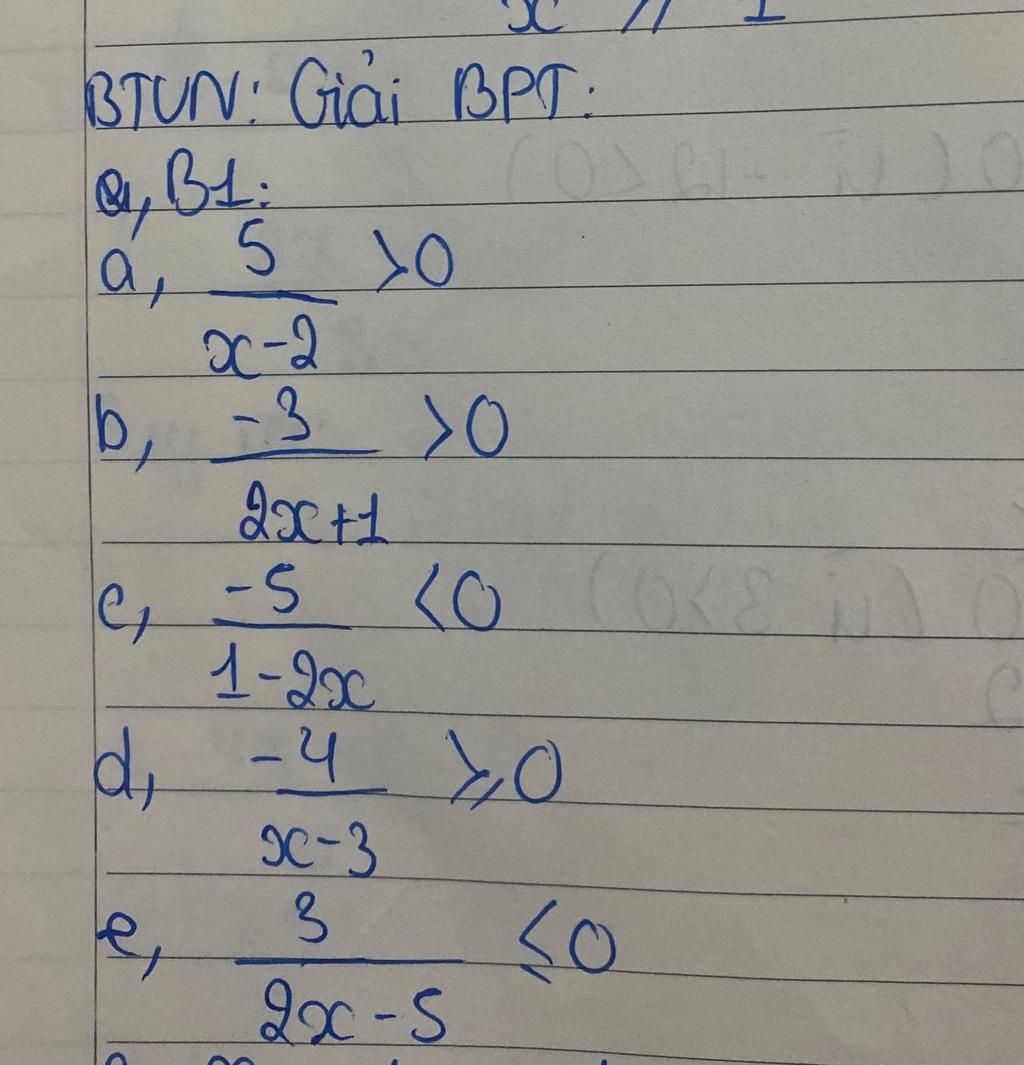 x ⩾ 1
BTVN: Giải BPT:
B1:
a, 5/(x-2) >0
b, -3/(2x+1) >0
c, -5/(1-2x) <0
d, -4/(x-3) ⩾0
e, 3/(2x-5) ≤0